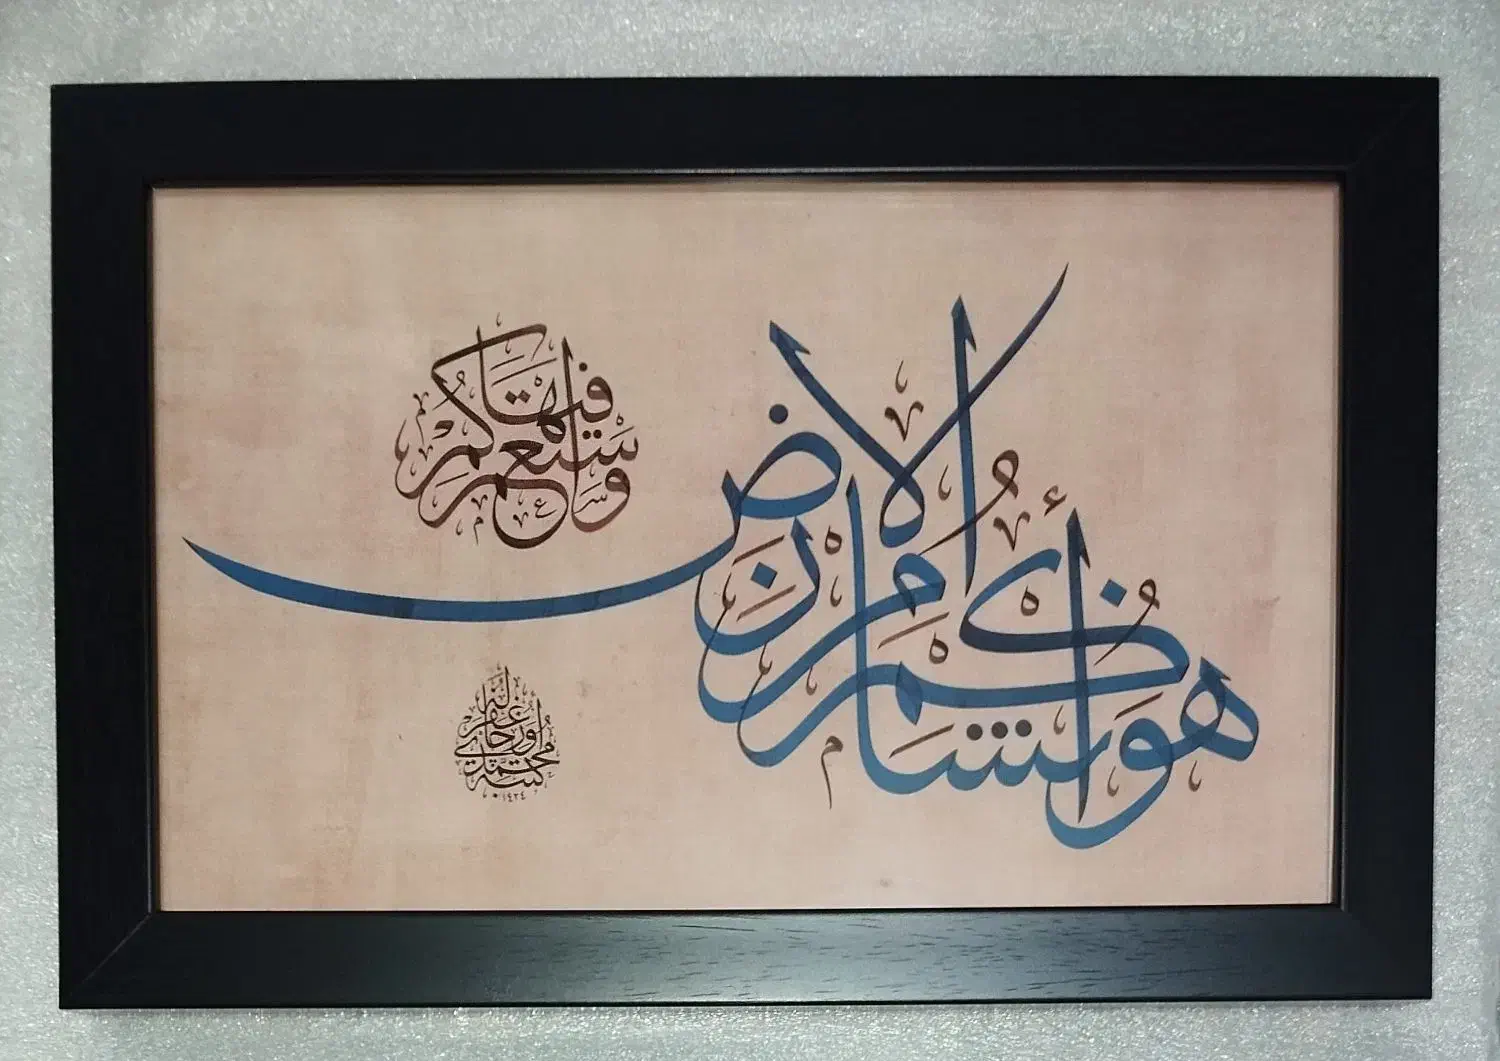 هو أنشأكم من الأرض
واستعمركم فيها
كتبه محمد اوزجاي غفر له
١٤٢٤